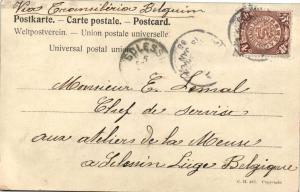 Via Transibéria Belgium
Postkarte. – Carte postale. – Postcard.
Weltpostverein. – Union postale universelle
Universal postal union
Monsieur E.
Chef de service
aux ateliers de la Meuse
à Sclessin Liège Belgique